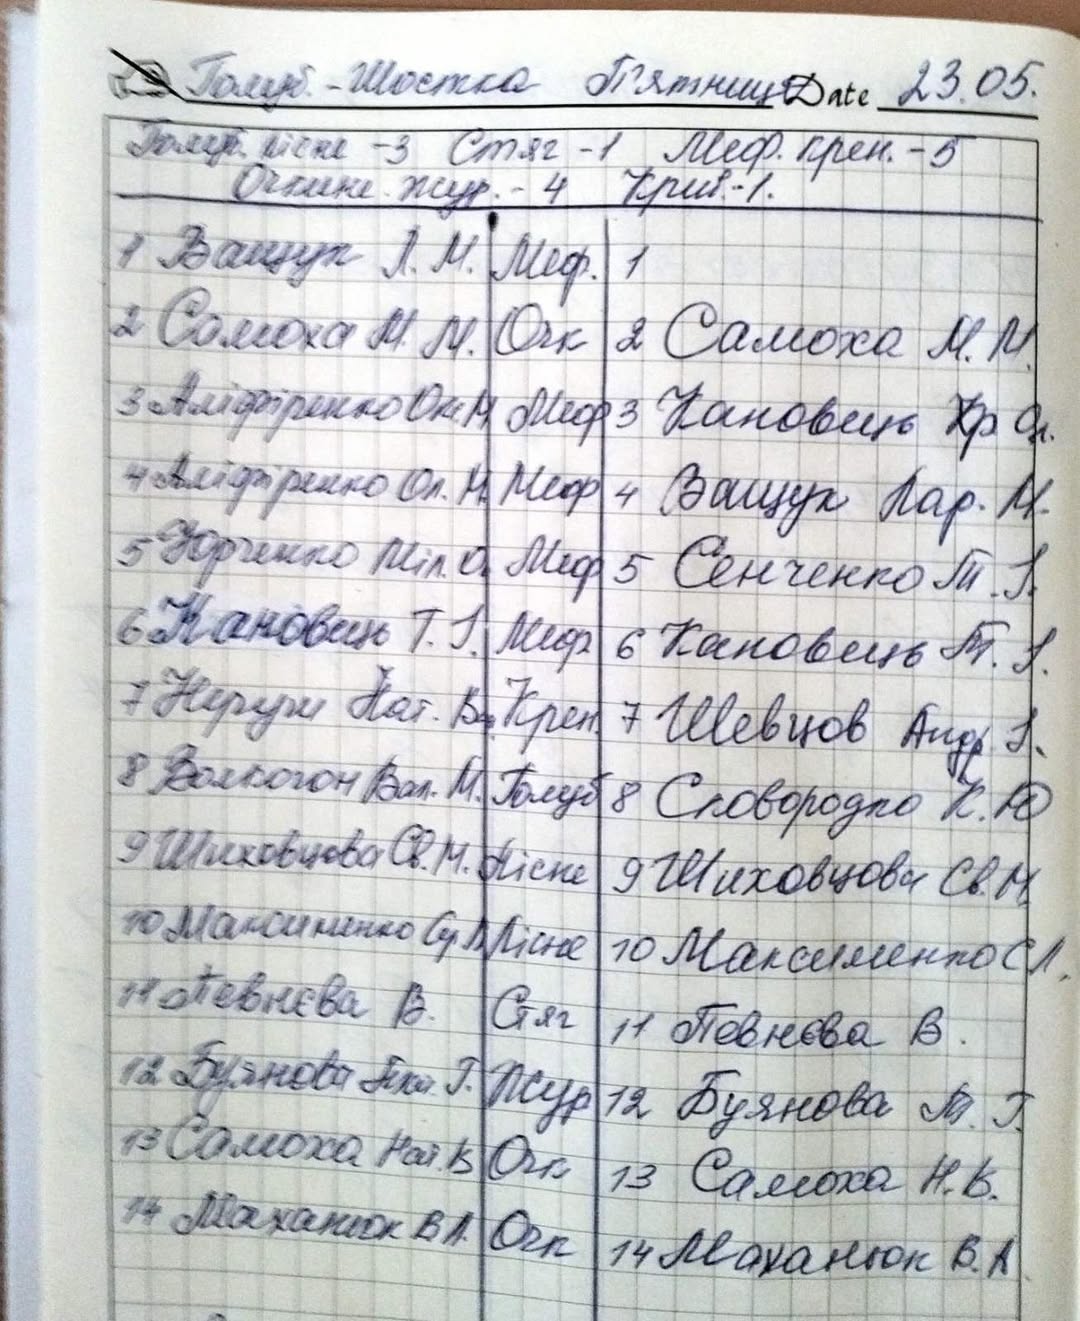 Голуб. - Шостка П'ятниця Date 23.05.
Голуб. Лісне -3 Стяг -1 Меф. Крен. -5
Очкине. Жур. - 4 Крив.-1.
1 Ващук Л. М. Меф. 1
2 Самоха М. М. Очк 2 Самоха М. М.
3 Аліфіренко Ок. М Меф 3 Кановець Хр Ол.
4 Аліфіренко Ол. М. Меф 4 Ващук Лар. М.
5 Юрченко Міл. О. Меф 5 Сенченко Т. І.
6 Кановець Т. І. Меф 6 Кановець Т. І.
7 Нат. В. Крен. 7 Шевцов Андр І.
8 Волкогон Вал. М. Голуб 8 Сковородко К. Ю
9 Шиховцова Св. М. Лісне 9 Шиховцова Св. М
10 Максименко Лісне 10 Максименко С Л.
11 Певнєва В. Стяг 11 Певнєва В.
12 Буянова Г. Жур 12 Буянова Т. Г.
13 Самоха Нат. В Очк 13 Самоха Н. В.
14 Маханьок В Л. Очк 14 Маханьок В. Л